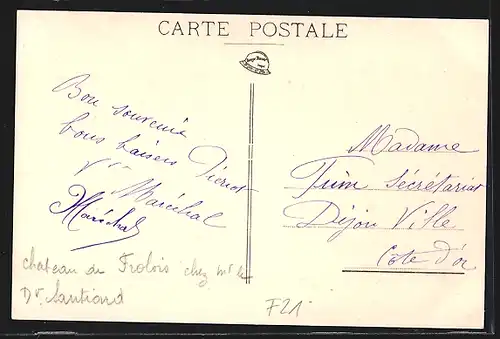 CARTE POSTALE
Bon souvenir
bons baisers Pierrot
Maréchal
Maréchal
Madame
Secrétariat
Dijon Ville
Côte d'or
chateau de Frolois chez Mr le
Dr
F21